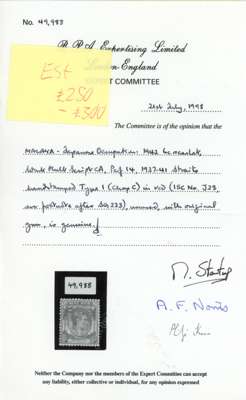 No. 49,983
B.P.A. Expertising Limited
London England
EXPERT COMMITTEE
Est
£250
- £300
21st July, 1998
The Committee is of the opinion that the
MALAYA - Japanese Occupation: 1942 6c.
Wmk Mult Script CA, Perf 14, 1937-41 Straits
handstamped Type 1 in red (ISC No. J23,
SG J223), unused, with original
gum, is genuine.
49,983
Neither the Company nor the members of the Expert Committee can accept
any liability, either collective or individual, for any opinion expressed